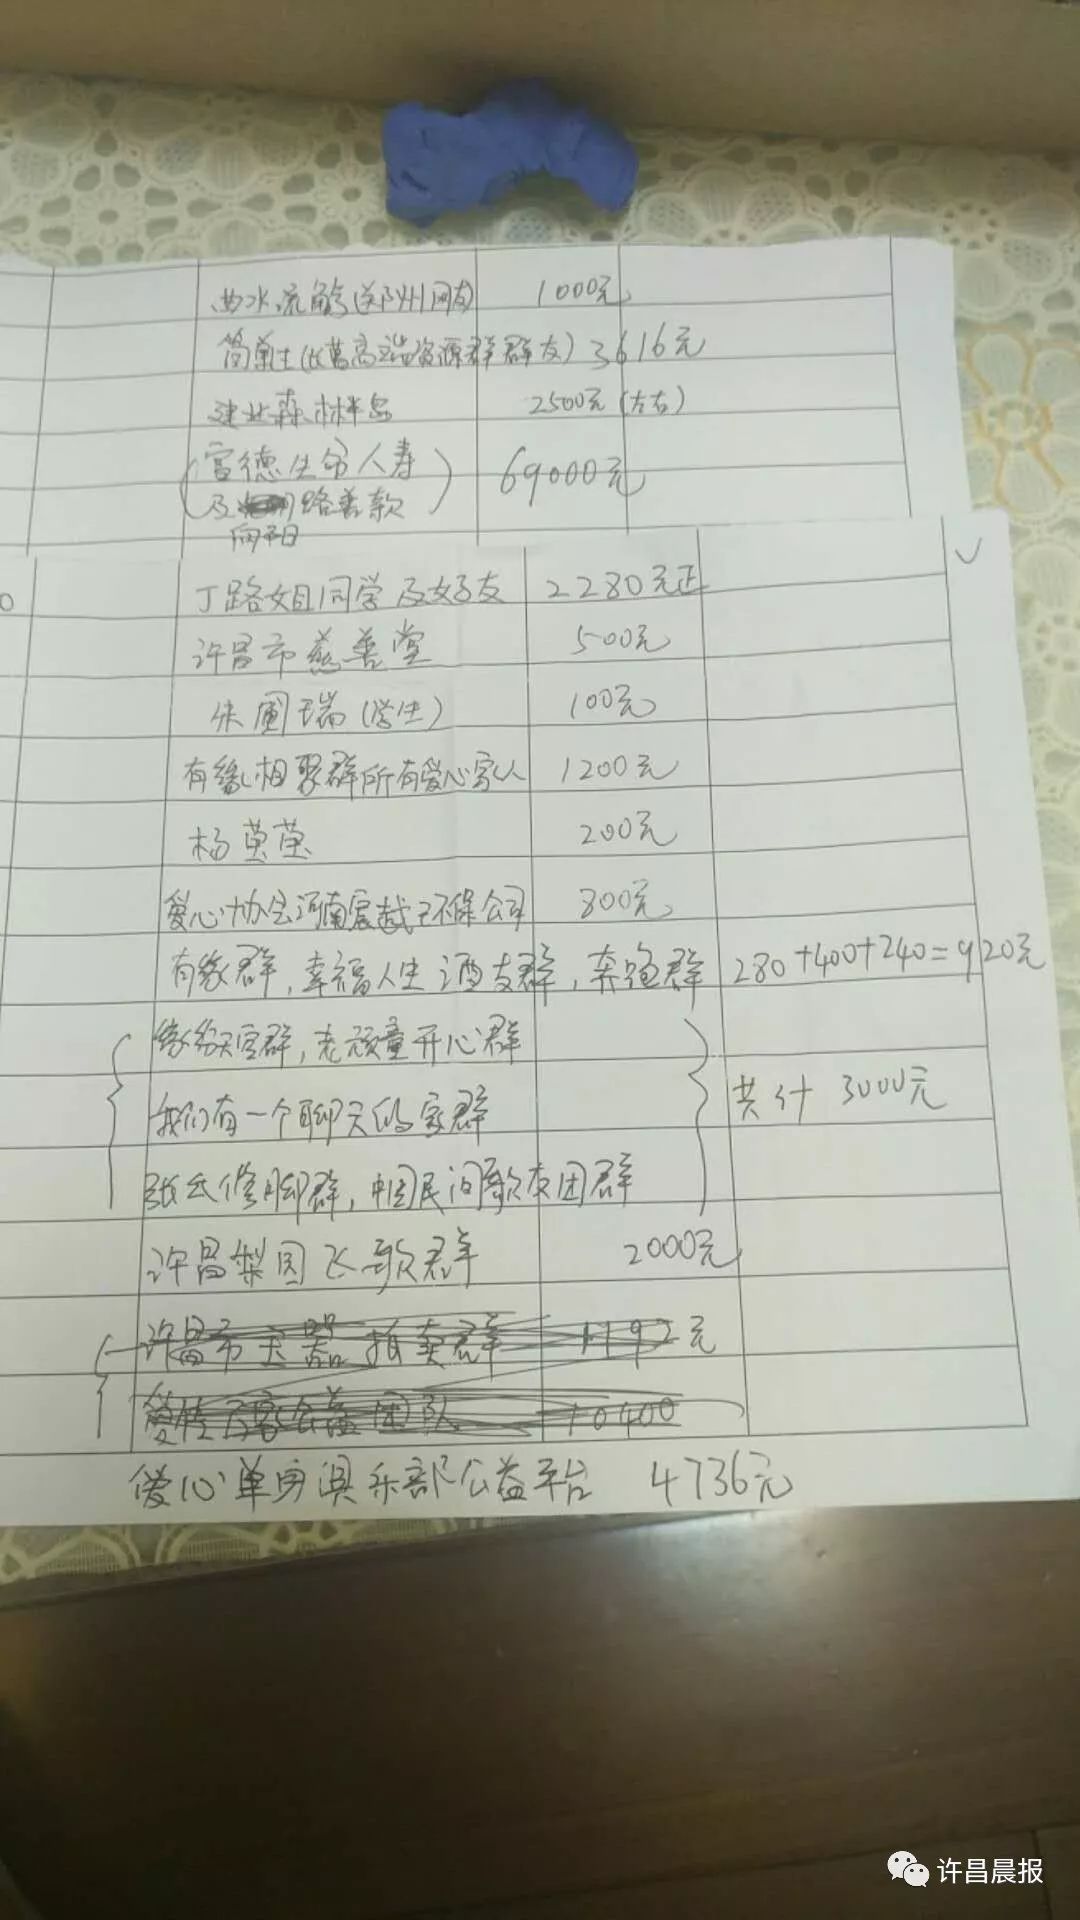 曲水流觞(郑州网友 1000元
简单生(长葛高端资源群群友) 3616元
建业森林半岛 2500元(左右)
(富德生命人寿 69000元
及路善款)
向平日
丁路姐同学及好友 2280元正
许昌市慈善堂 500元
朱圆瑞(学生) 100元
有缘相聚群所有爱心家人 1200元
杨萤萤 200元
爱心协会河南震越环保公司 800元
有缘群,幸福人生酒友群,奔跑群 280+400+240=920元
缘纷天空群,老顽童开心群
我们有一个聊天的家群 共计 3000元
张氏修脚群,中国民间歌友团群
许昌梨园飞歌群 2000元
许昌市玉器拍卖群 1192元
公益团队 10400
爱心单身俱乐部公益平台 4736元
许昌晨报